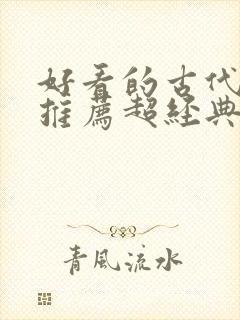 好看的古代
推薦超經典
青風流水